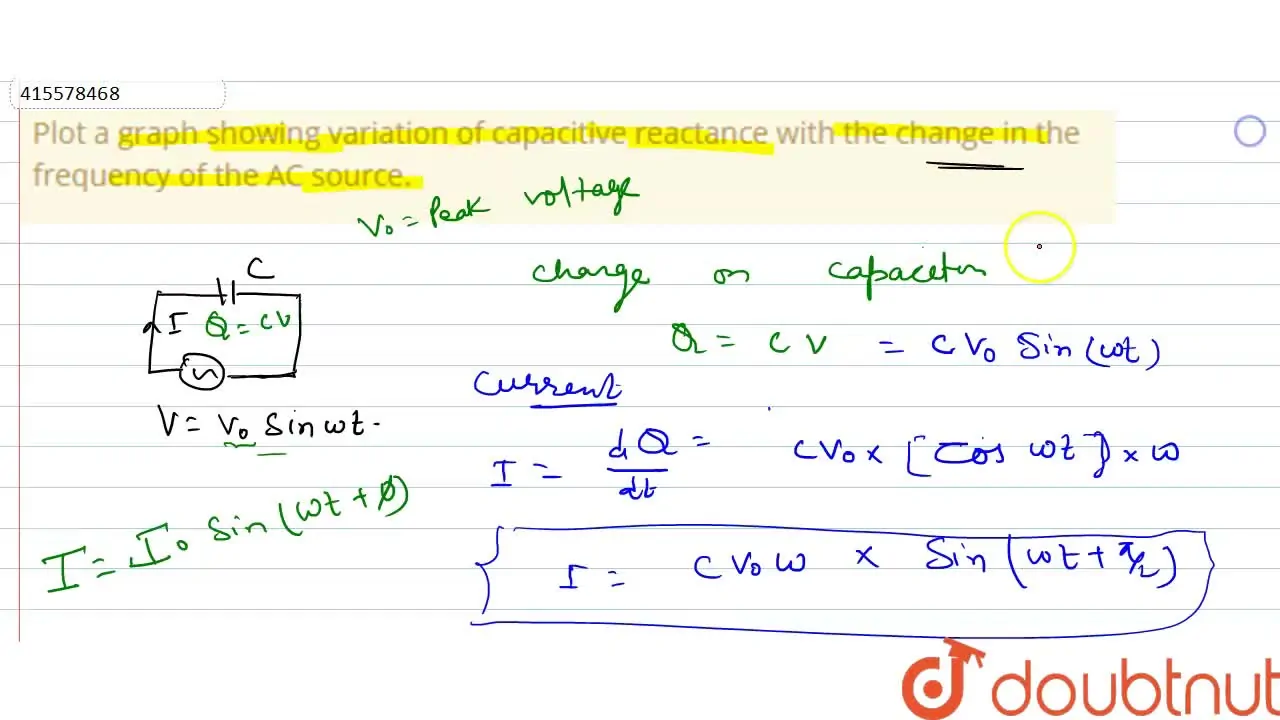 415578468
Plot a graph showing variation of capacitive reactance with the change in the
frequency of the AC source.
V₀ = Peak voltage
C
I Q = CV
V = V₀ Sin ωt
I = I₀ Sin (ωt + φ)
Charge on capacitor
Q = C V = C V₀ Sin (ωt)
Current
I = dQ/dt = CV₀ × [Cos ωt] × ω
I = C V₀ ω × Sin (ωt + π/2)
doubtnut